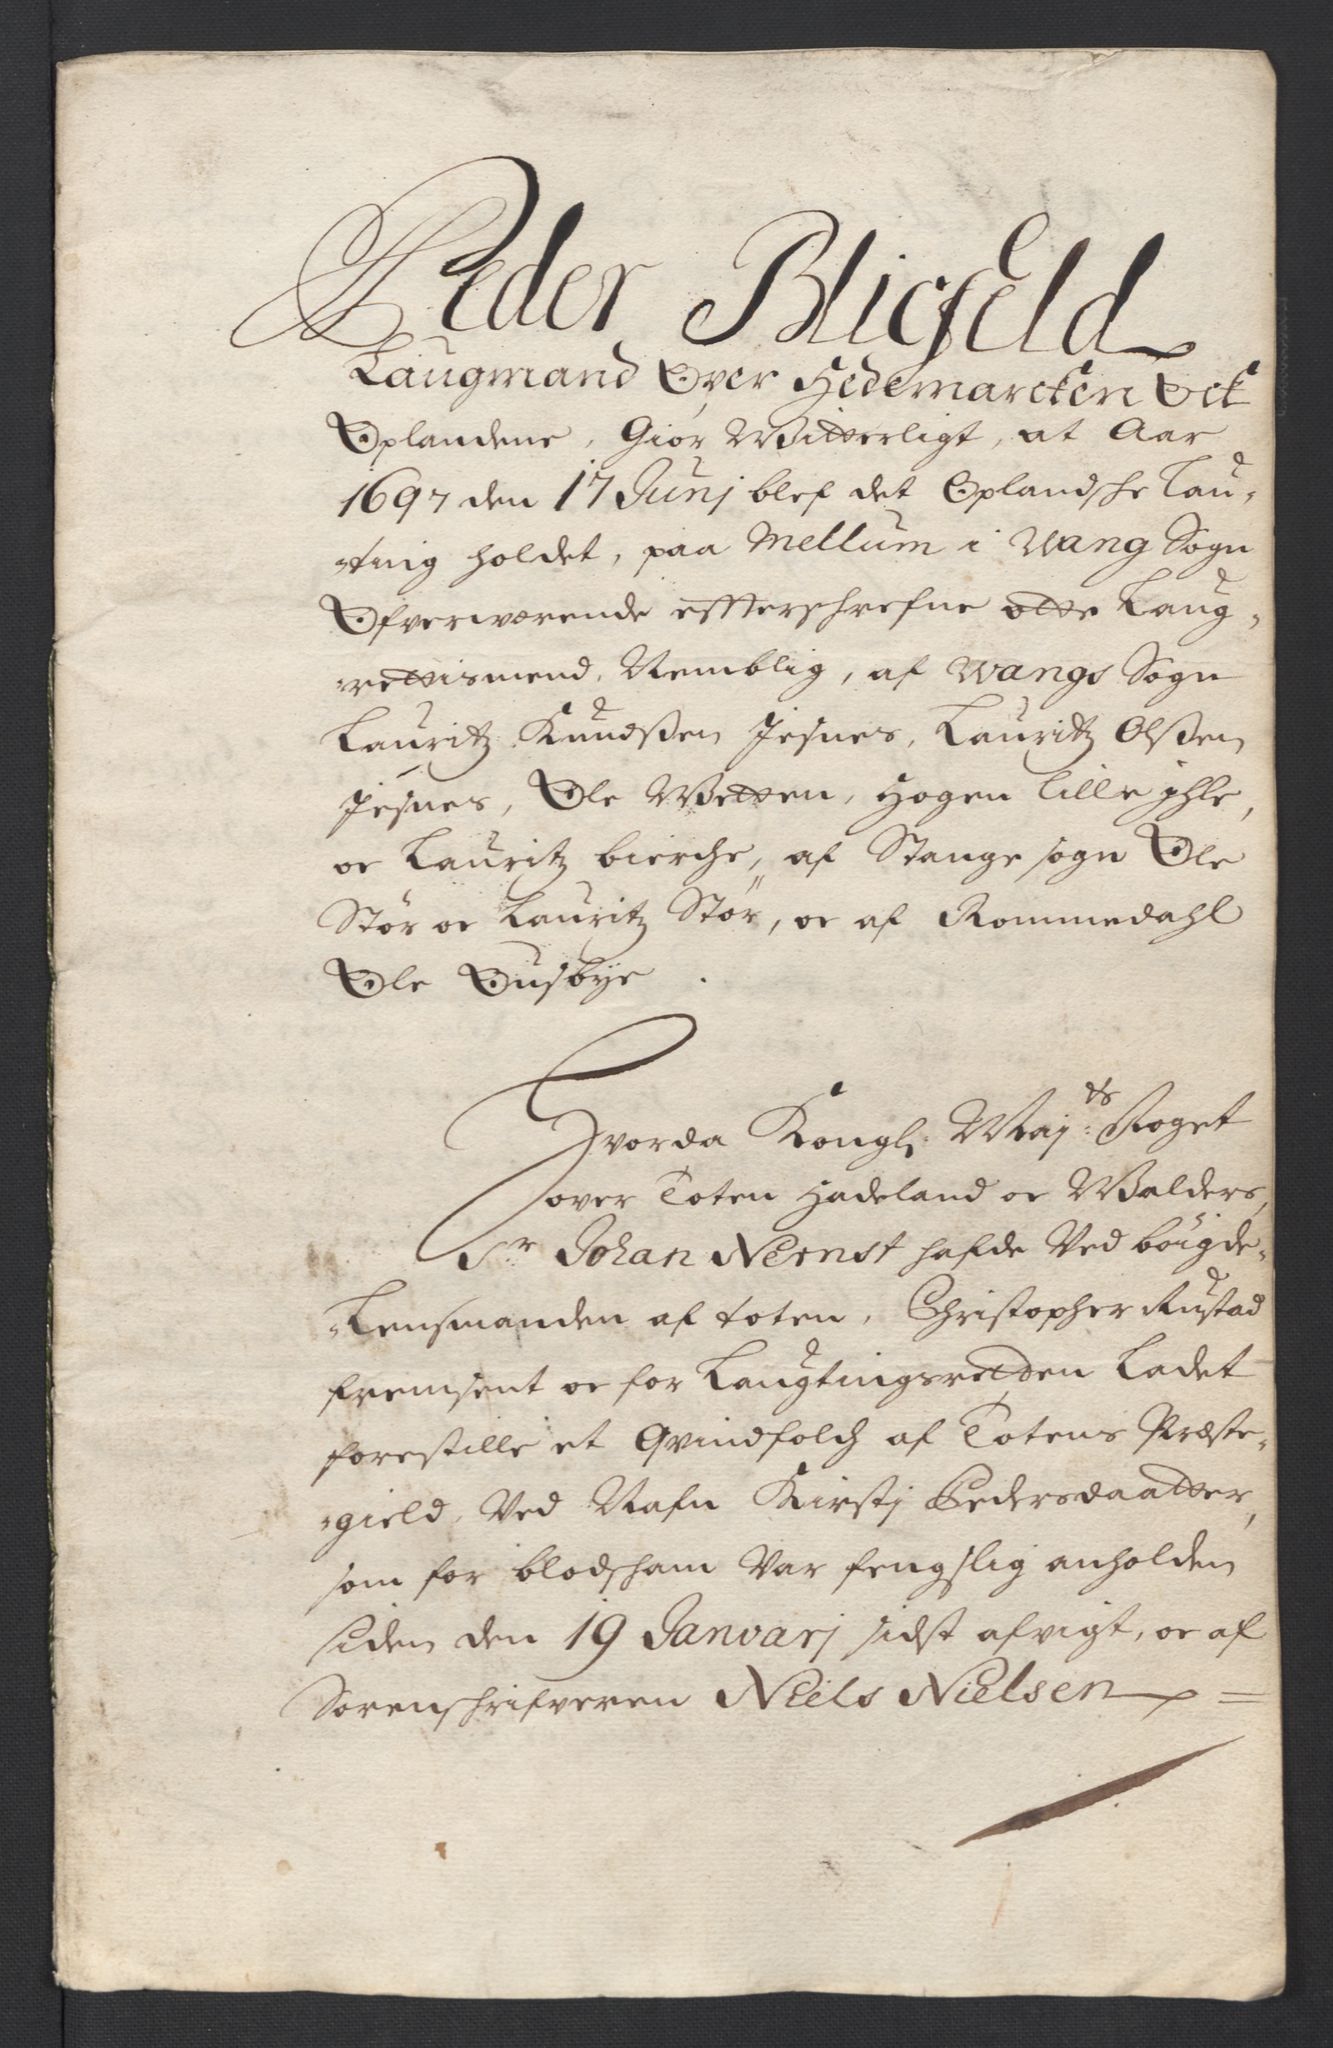 Peder Blicfeld
Laugmand Over Hedemarcken Och
Oplandene, Giør Witterligt, at Aar
1697 den 17 Junj blef det Oplandshe Lau-
-ting holdet, paa Mellum i Vang Sogn
Ofverværende effterschrefne otte Laug-
-rettismend, Nemblig, af Wangs Sogn
Lauritz Knudßen Jesnes, Lauritz Olßen
Jesnes, Ole Wetten, Hogen Lille jhle,
oc Lauritz bierche, af Stange sogn Ole
Stør oc Lauritz Stør, oc af Rommedahl
Ole Ousbye.
Hvorda Kongl: Maj:ts Foget
over Toten Hadeland oc Walders,
Sr. Johan Nernst hafde Vedböigde-
-Lensmanden af toten, Christopher Rustad
fremsent oc for Laugtingsretten Ladet
forestille et Qvindfolch af Totens Præste-
-gield, Ved Nafn Kirstj Pedersdaatter,
som for blodsham Var fengslig anholden
siden den 19 Janvarj sidst afvigt, oc af
Sorenschrifveren Niels Nielsen =